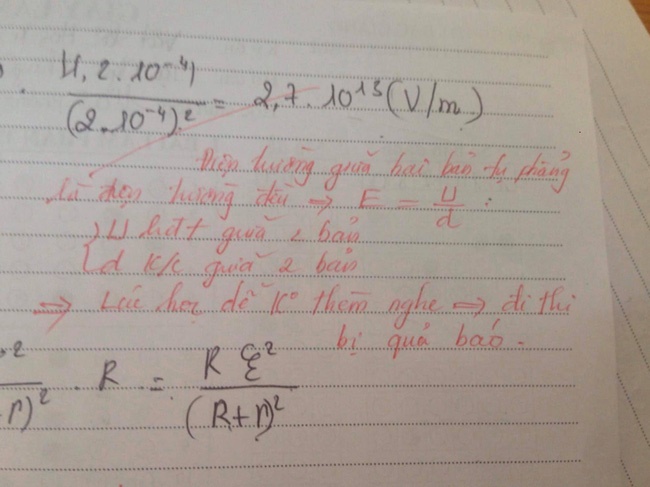 . 4,2.10⁻⁴) / (2.10⁻⁴)² = 2,7.10¹³ (V/m)
Điện trường giữa hai bản tụ phẳng
là điện trường đều => E = U/d :
{ U hđt giữa 2 bản
d K/c giữa 2 bản
=> Lúc học dễ k° thèm nghe => đi thi
bị quả báo.
² / r)² . R = R ℰ² / (R+r)²